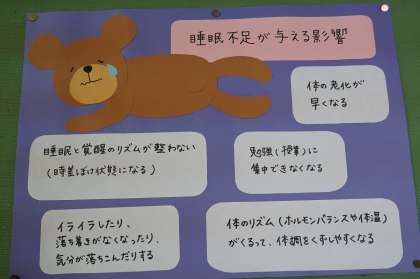 睡眠不足が与える影響
体の老化が
早くなる
睡眠と覚醒のリズムが整わない
(時差ぼけ状態になる)
勉強(授業)に
集中できなくなる
イライラしたり、
落ち着きがなくなったり、
気分が落ちこんだりする
体のリズム(ホルモンバランスや体温)
がくるって、体調をくずしやすくなる